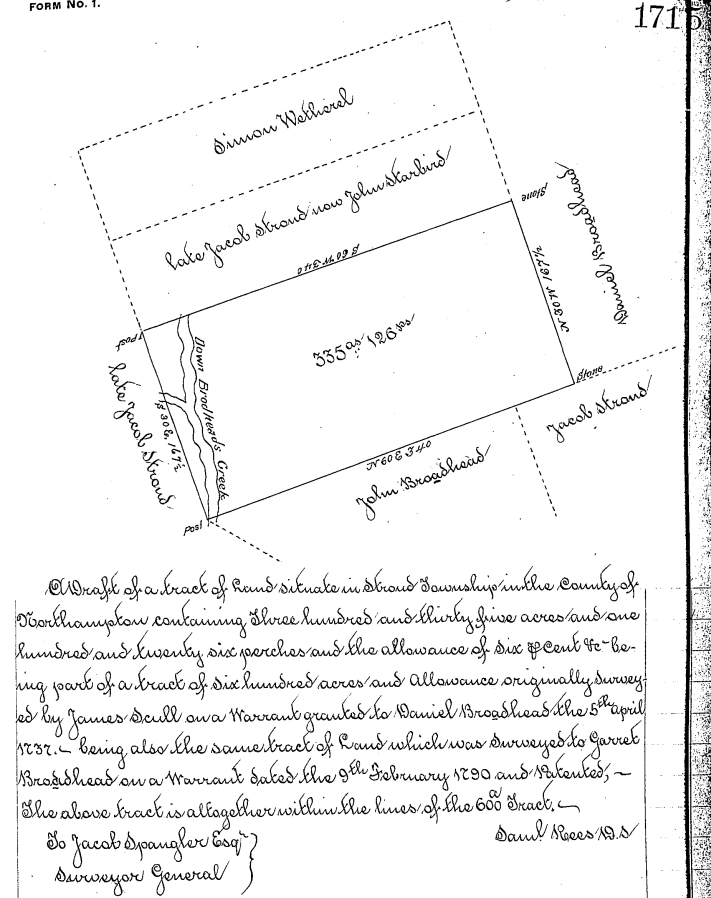 FORM No. 1.
1715
Simon Wetherel
late Jacob Stroud now John Starbird
Stone
Daniel Broadhead
S 60 W 340
N 30 W 167½
335 as.. 126 ps
Post
Down Brodheads Creek
late Jacob Stroud
S 30 E. 167½
N 60 E 340
John Broadhead
Jacob Stroud
Post
A Draft of a tract of Land situate in Stroud Township in the County of
Northampton containing Three hundred and thirty five acres and one
hundred and twenty six perches and the allowance of six ⅌ Cent &c - be-
ing part of a tract of six hundred acres and Allowance originally survey-
ed by James Scull on a Warrant granted to Daniel Broadhead the 5th april
1737. – being also the same tract of Land which was surveyed to Garret
Broadhead on a Warrant dated the 9th February 1790 and Patented, –
The above tract is altogether within the lines of the 600a Tract. –
To Jacob Spangler Esqr
Surveyor General
Saml Rees D.S